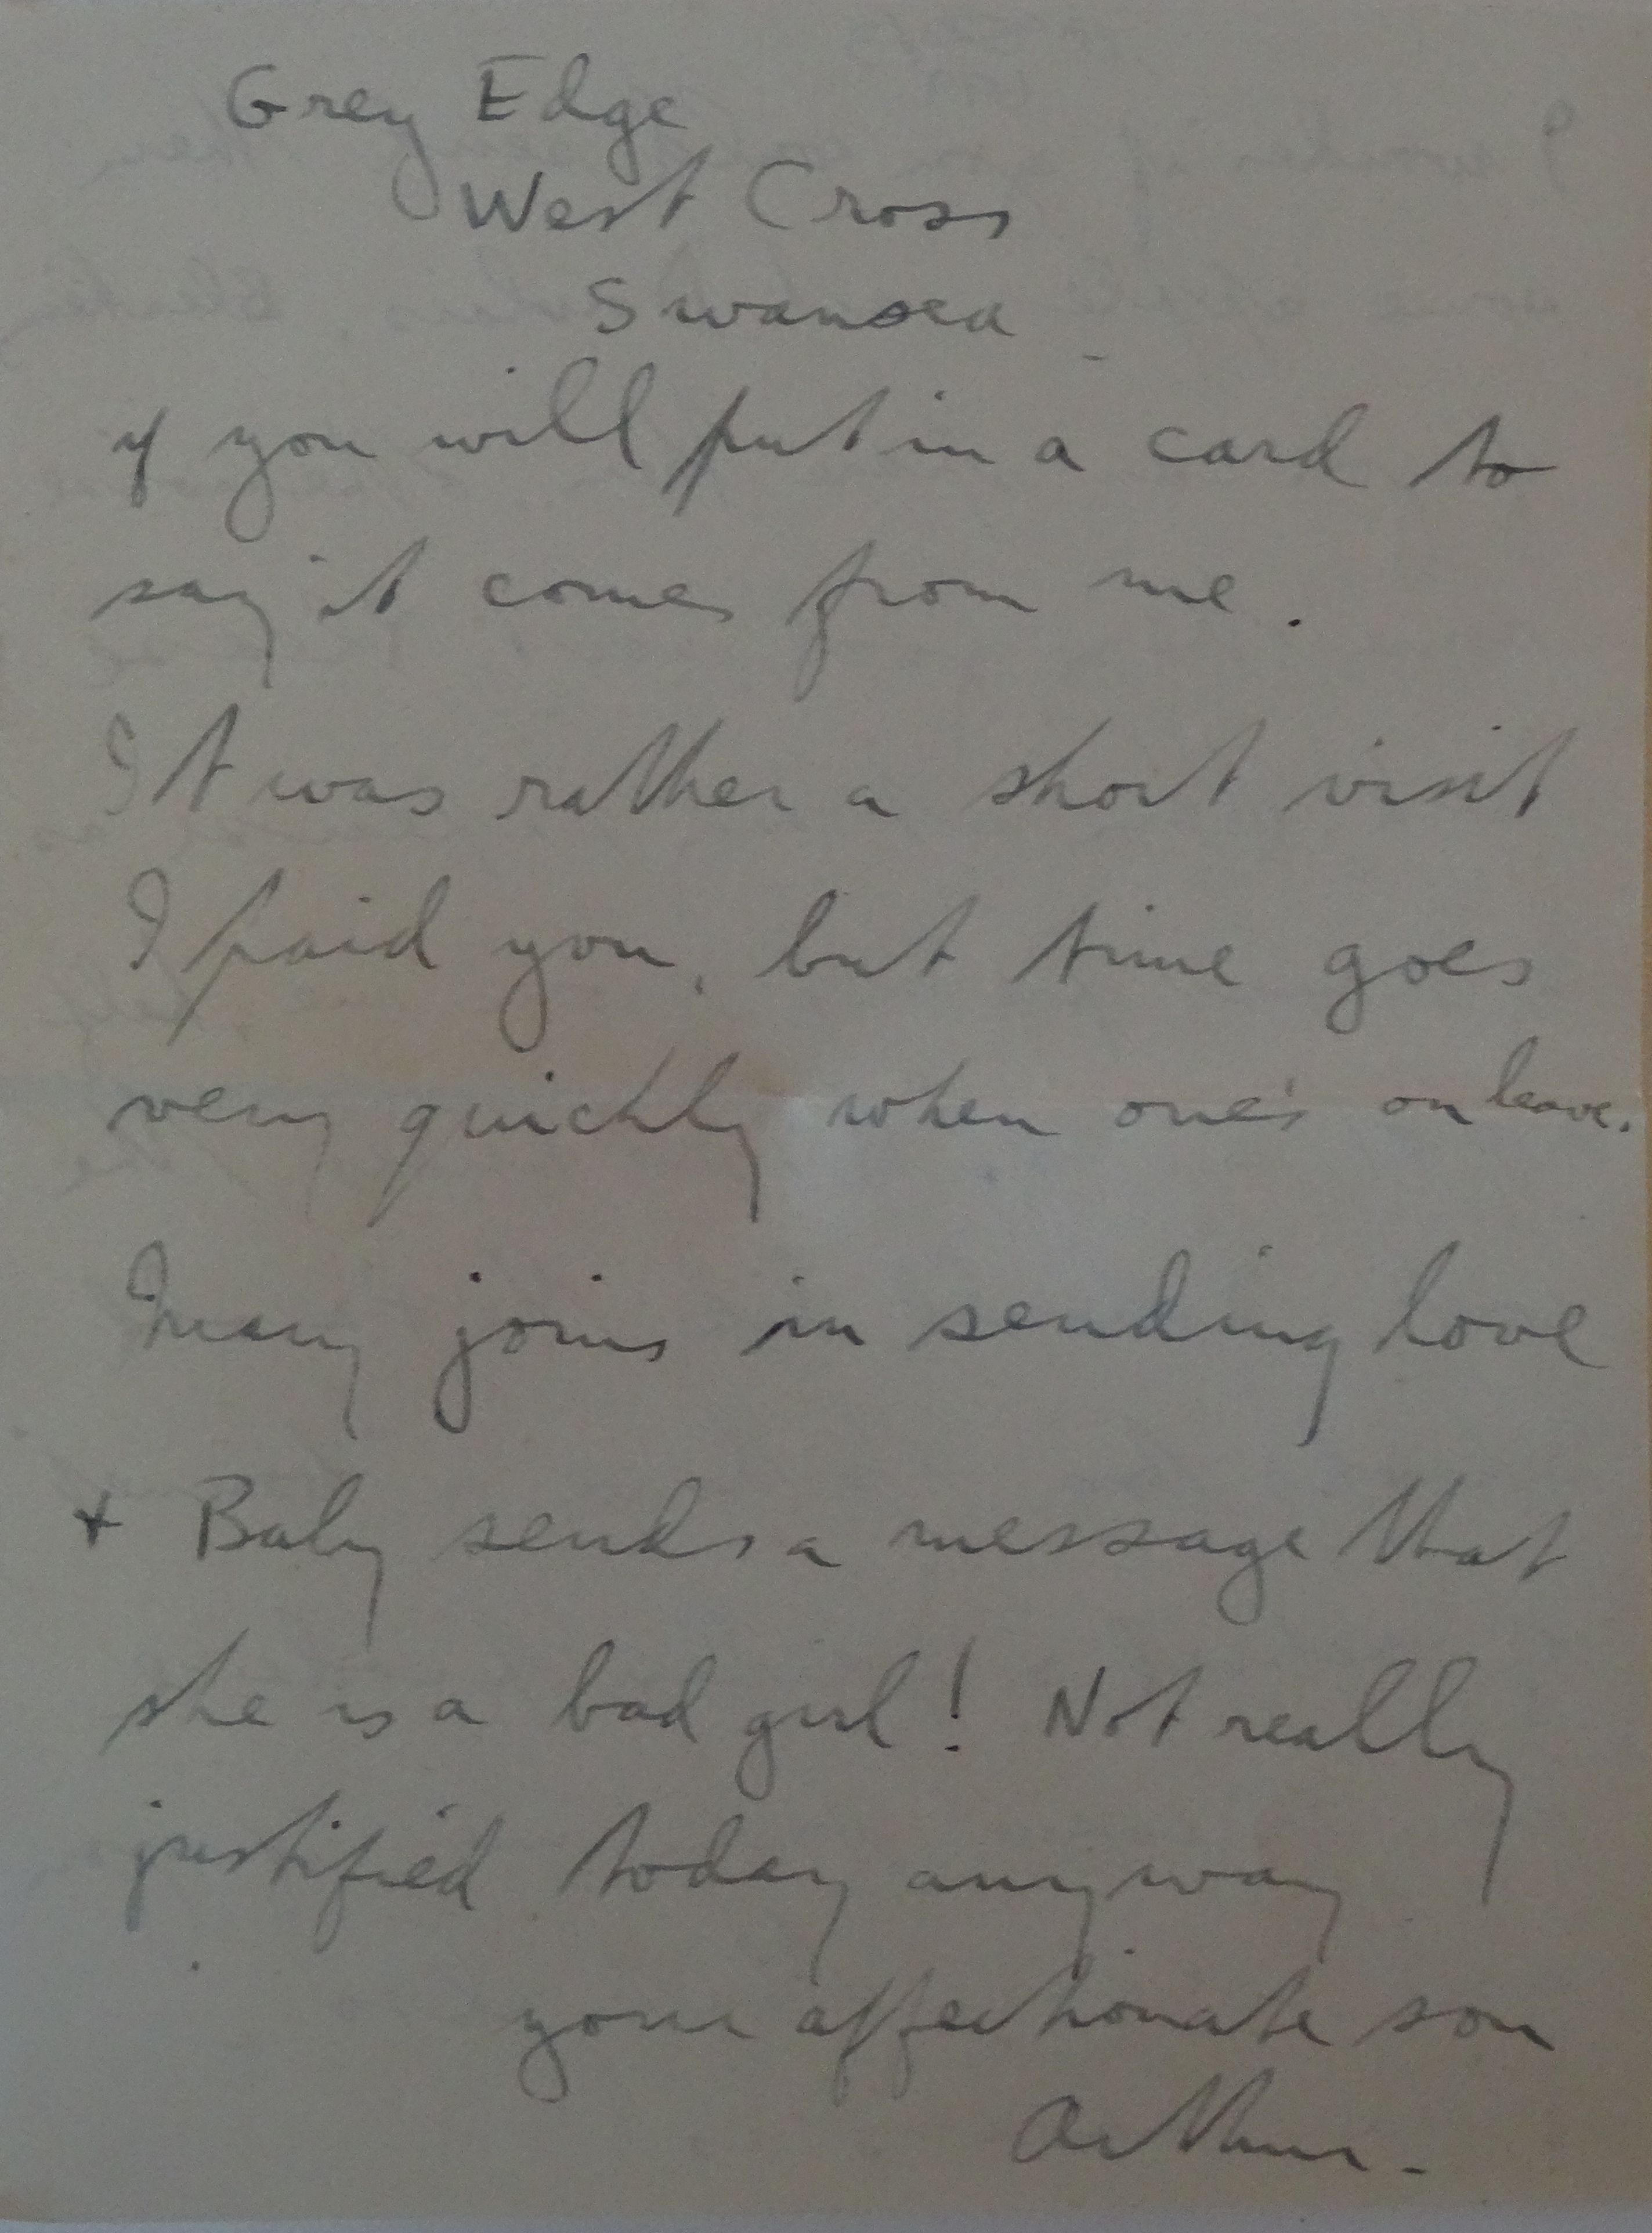 Grey Edge
West Cross
Swansea
if you will put in a card to
say it comes from me.
It was rather a short visit
I paid you, but time goes
very quickly when one's on leave.
Mary joins in sending love
+ Baby sends a message that
she is a bad girl! Not really
justified today anyway
your affectionate son
Arthur.